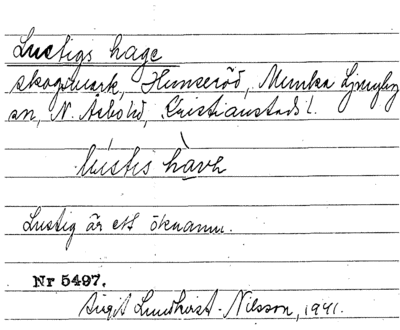 Lustigs hage
skogsmark, Hunseröd, Munka Ljungby
sn, N. Åsbo hd, Kristianstads l.
lústis hàvɛ
Lustig är ett öknamn.
Nr 5497.
Birgit Lundkvist-Nilsson, 1941.